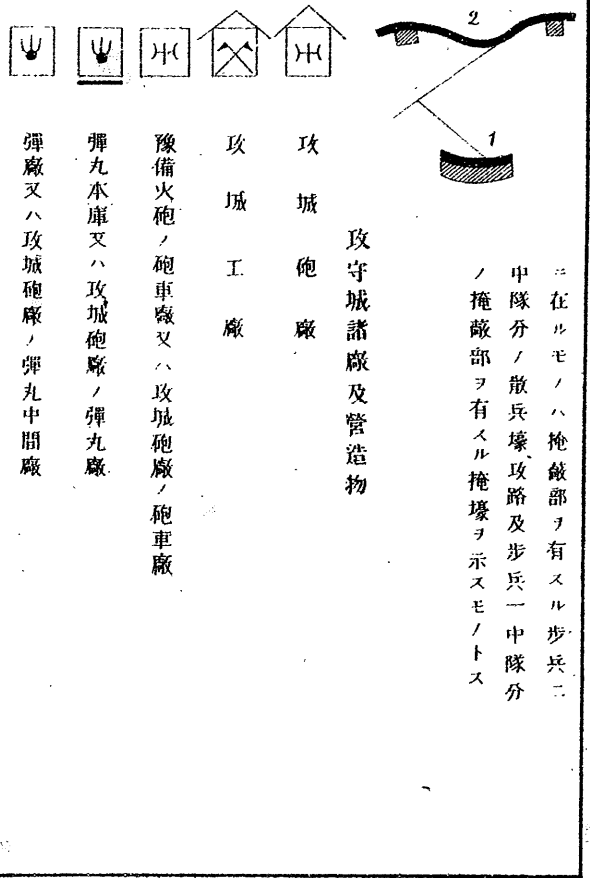 2
1
ニ在ルモノハ掩蔽部ヲ有スル步兵二
中隊分ノ散兵壕、攻路及步兵一中隊分
ノ掩蔽部ヲ有スル掩壕ヲ示スモノトス
攻守城諸廠及營造物
攻城砲廠
攻城工廠
豫備火砲ノ砲車廠又ハ攻城砲廠ノ砲車廠
彈丸本庫又ハ攻城砲廠ノ彈丸廠
彈廠又ハ攻城砲廠ノ彈丸中間廠